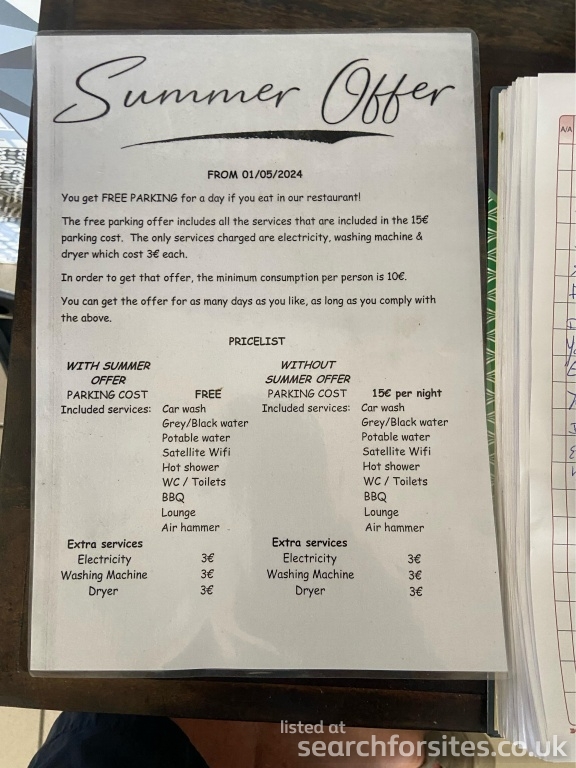 Summer Offer
FROM 01/05/2024
You get FREE PARKING for a day if you eat in our restaurant!
The free parking offer includes all the services that are included in the 15€
parking cost. The only services charged are electricity, washing machine &
dryer which cost 3€ each.
In order to get that offer, the minimum consumption per person is 10€.
You can get the offer for as many days as you like, as long as you comply with
the above.
PRICELIST
WITH SUMMER
OFFER
PARKING COST FREE
Included services: Car wash
Grey/Black water
Potable water
Satellite Wifi
Hot shower
WC / Toilets
BBQ
Lounge
Air hammer
Extra services
Electricity 3€
Washing Machine 3€
Dryer 3€
WITHOUT
SUMMER OFFER
PARKING COST 15€ per night
Included services: Car wash
Grey/Black water
Potable water
Satellite Wifi
Hot shower
WC / Toilets
BBQ
Lounge
Air hammer
Extra services
Electricity 3€
Washing Machine 3€
Dryer 3€
A/A
listed at
searchforsites.co.uk